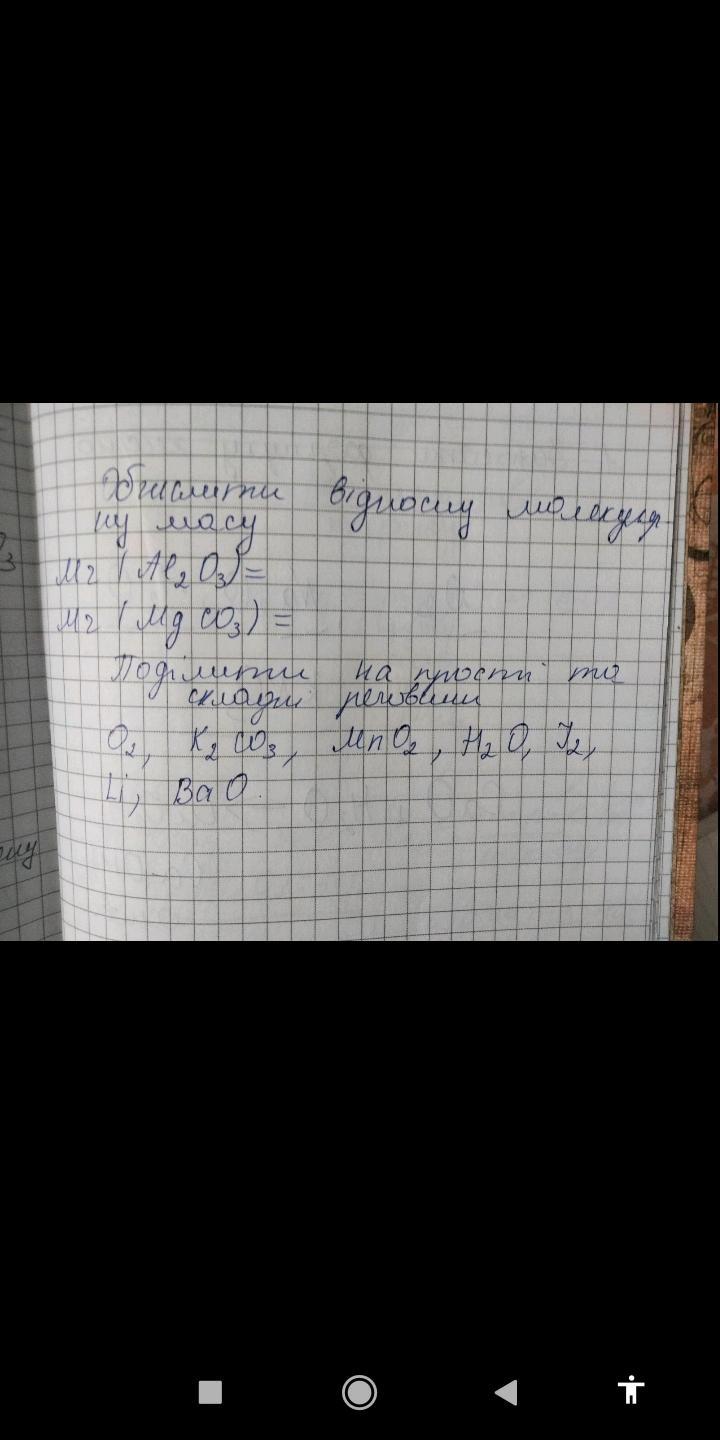 Обчислити відносну молекуляр
ну масу
Mr (Al₂O₃)=
Mr (MgCO₃) =
Поділити на прості та
складні речовини
O₂, K₂CO₃, MnO₂, H₂O, I₂,
Li, BaO.